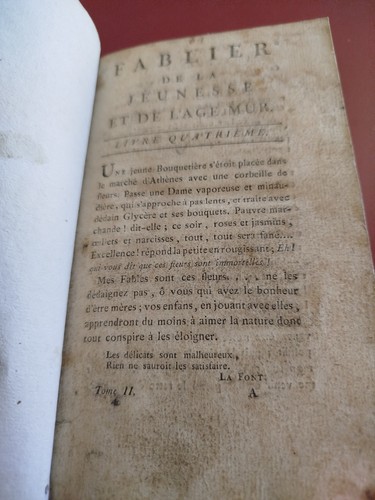 LE
FABLIER
DE LA
JEUNESSE
ET DE L'AGE MUR.
LIVRE QUATRIEME.
UNE jeune Bouquetière s'étoit placée dans
le marché d'Athènes avec une corbeille de
fleurs. Passe une Dame vaporeuse et minau-
dière, qui s'approche à pas lents, et traite avec
dédain Glycère et ses bouquets. Pauvre mar-
chande ! dit-elle ; ce soir, roses et jasmins,
œillets et narcisses, tout, tout sera fané....
Excellence ! répond la petite en rougissant, Eh !
qui vous dit que ces fleurs sont immortelles ?
Mes Fables sont ces fleurs.... ne les
dédaignez pas, ô vous qui avez le bonheur
d'être mères ; vos enfans, en jouant avec elles,
apprendront du moins à aimer la nature dont
tout conspire à les éloigner.
Les délicats sont malheureux,
Rien ne sauroit les satisfaire.
LA FONT.
Tome II. A